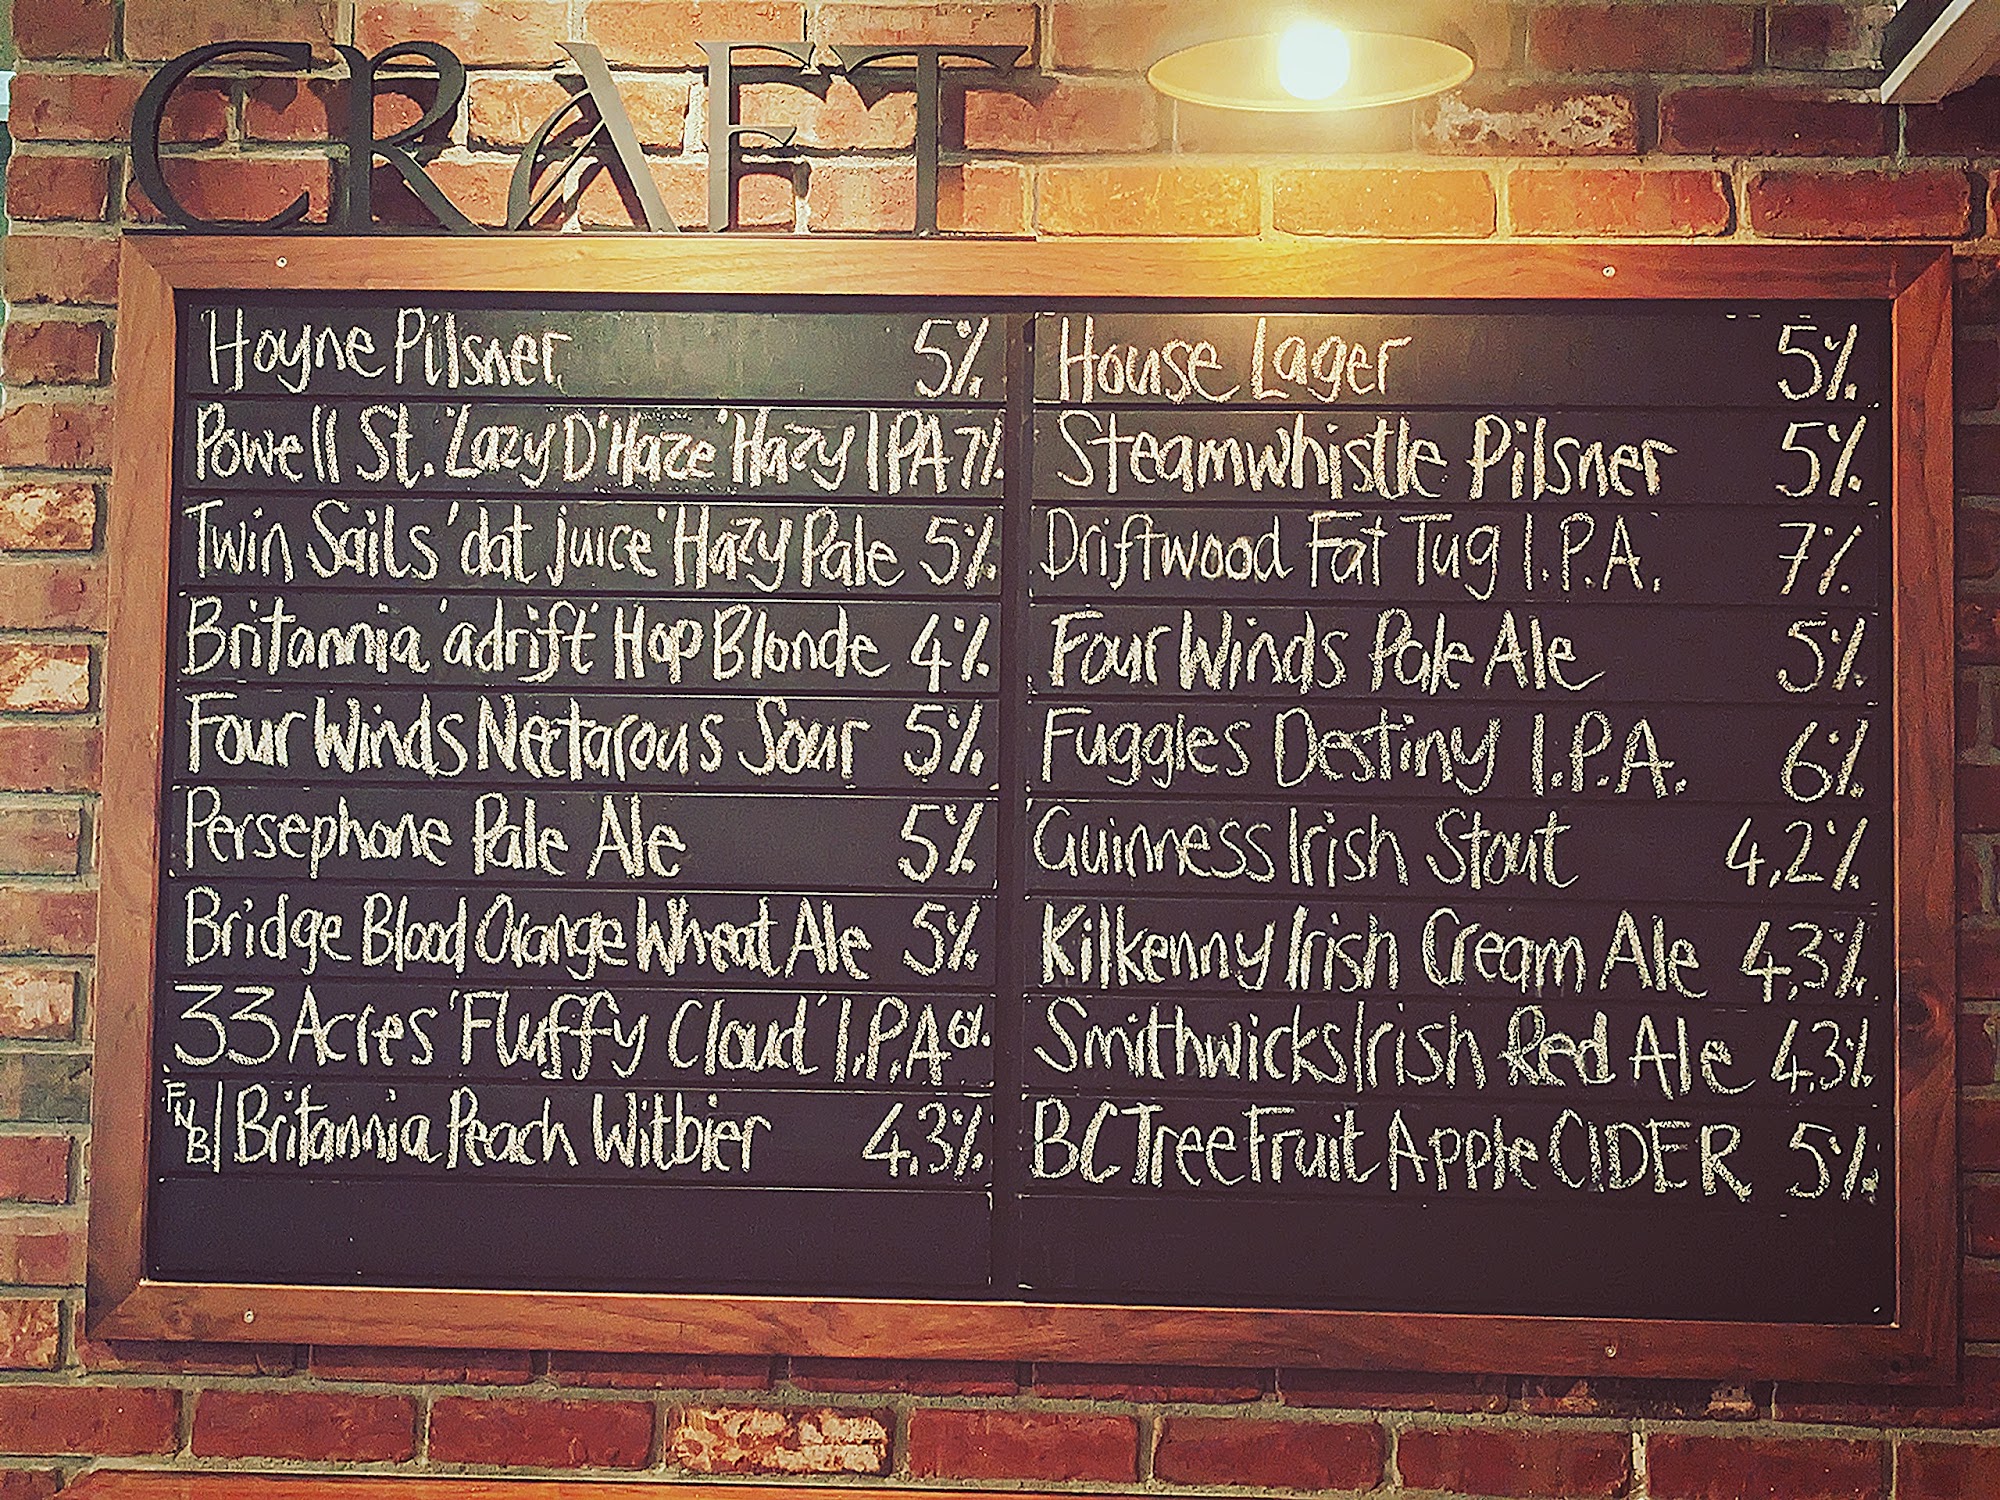 CRAFT
Hoyne Pilsner 5%
Powell St. 'Lazy D'Haze' Hazy IPA 7%
Twin Sails 'dat juice' Hazy Pale 5%
Britannia 'adrift' Hop Blonde 4%
Four Winds Nectarous Sour 5%
Persephone Pale Ale 5%
Bridge Blood Orange Wheat Ale 5%
33 Acres 'Fluffy Cloud' I.P.A 6%
FNB| Britannia Peach Witbier 4.3%
House Lager 5%
Steamwhistle Pilsner 5%
Driftwood Fat Tug I.P.A. 7%
Four Winds Pale Ale 5%
Fuggles Destiny I.P.A. 6%
Guinness Irish Stout 4,2%
Kilkenny Irish Cream Ale 4.3%
Smithwicks Irish Red Ale 4.3%
BC Tree Fruit Apple CIDER 5%